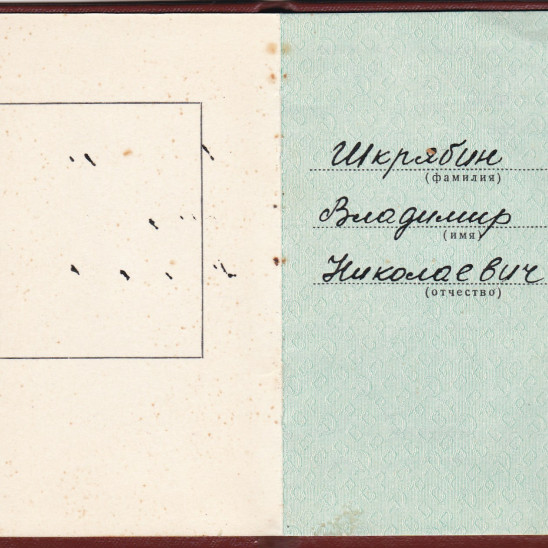 Шкрябин
(фамилия)
Владимир
(имя)
Николаевич
(отчество)